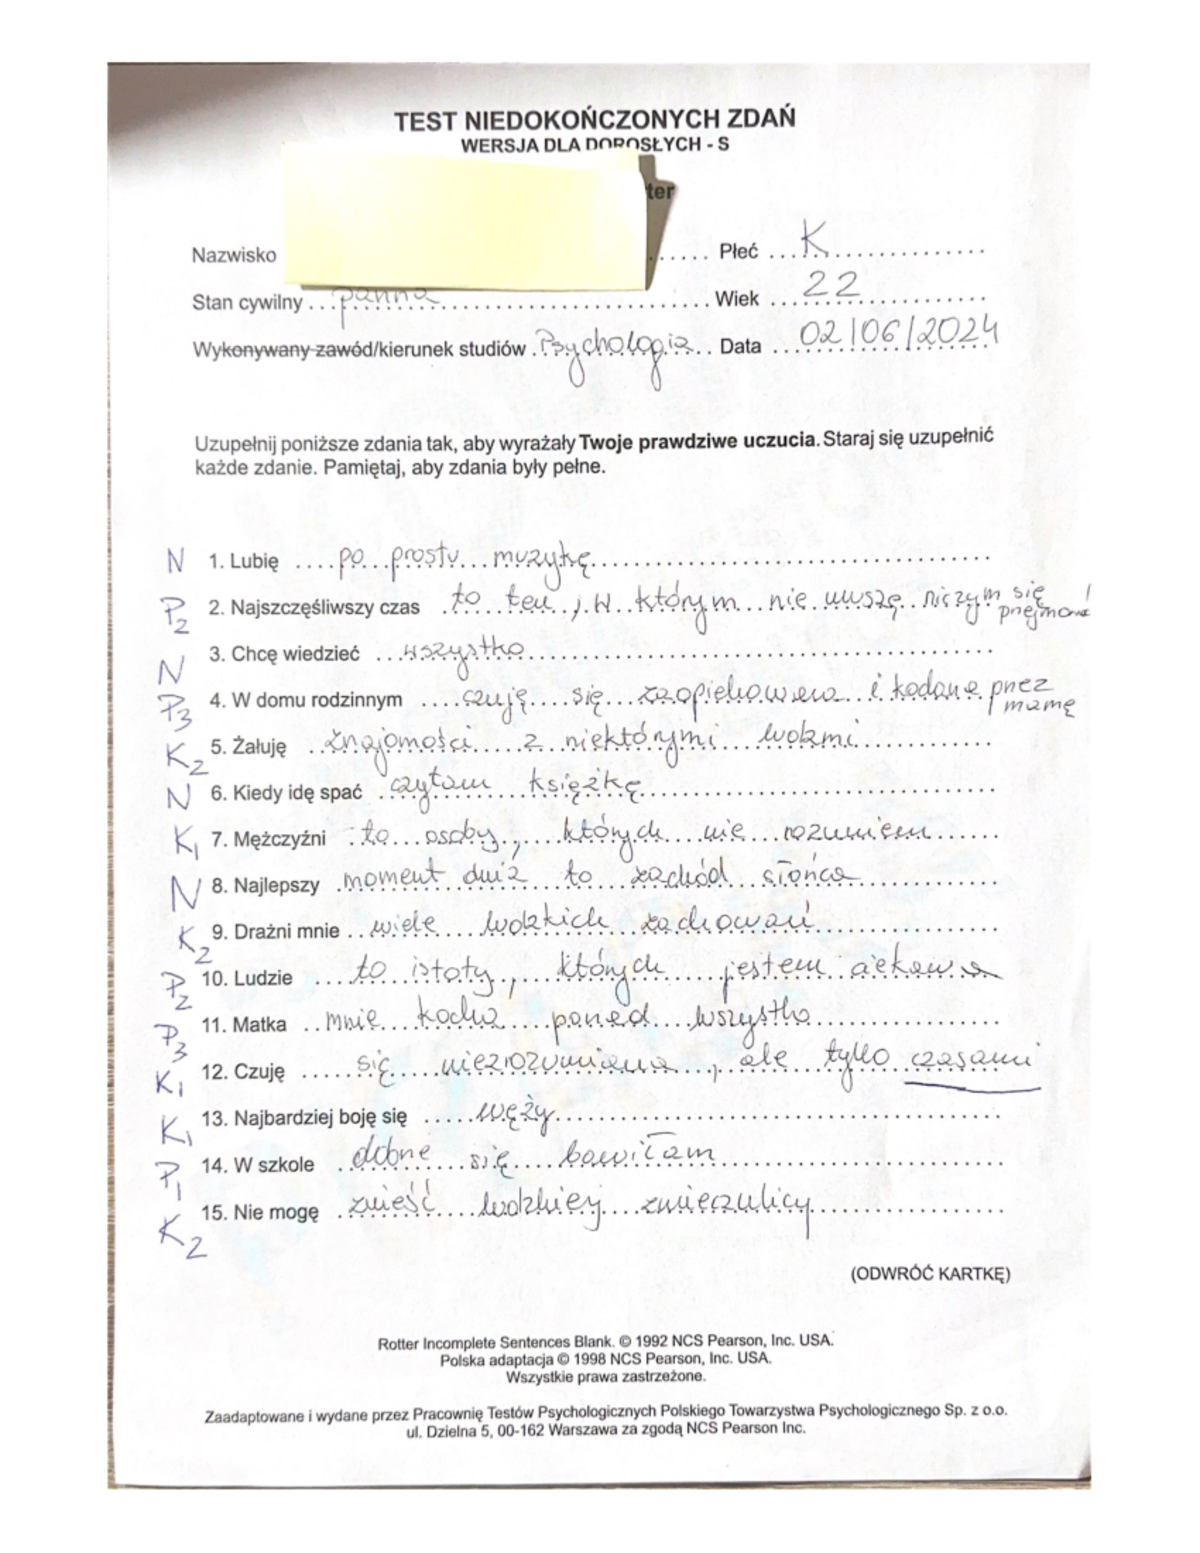 TEST NIEDOKOŃCZONYCH ZDAŃ
WERSJA DLA DOROSŁYCH - S
ter
Nazwisko ...... Płeć ...K...............
Stan cywilny ...panna............................... Wiek ....22...............
Wykonywany zawód/kierunek studiów .Psychologia.. Data ...02/06/2024
Uzupełnij poniższe zdania tak, aby wyrażały Twoje prawdziwe uczucia. Staraj się uzupełnić
każde zdanie. Pamiętaj, aby zdania były pełne.
N 1. Lubię ....po prostu muzykę.......................................
P2 2. Najszczęśliwszy czas .to ten, w którym nie muszę niczym się przejmować!
N 3. Chcę wiedzieć ...wszystko..............................................
P3 4. W domu rodzinnym ....czuję się zaopiekowana i kochana przez mamę
K2 5. Żałuję ..znajomości z niektórymi ludźmi.............
N 6. Kiedy idę spać .czytam książkę...................................
K1 7. Mężczyźni .to osoby, których nie rozumiem......
N 8. Najlepszy .moment dnia to zachód słońca.............
K2 9. Drażni mnie ..wiele ludzkich zachowań..................
P2 10. Ludzie ....to istoty, których jestem ciekawa
P3 11. Matka ..mnie kocha ponad wszystko...................
K1 12. Czuję ......się niezrozumiana, ale tylko czasami
K1 13. Najbardziej boję się .....węży...........................................
P1 14. W szkole ..dobrze się bawiłam.............................
K2 15. Nie mogę .znieść ludzkiej znieczulicy...................
(ODWRÓĆ KARTKĘ)
Rotter Incomplete Sentences Blank. © 1992 NCS Pearson, Inc. USA.
Polska adaptacja © 1998 NCS Pearson, Inc. USA.
Wszystkie prawa zastrzeżone.
Zaadaptowane i wydane przez Pracownię Testów Psychologicznych Polskiego Towarzystwa Psychologicznego Sp. z o.o.
ul. Dzielna 5, 00-162 Warszawa za zgodą NCS Pearson Inc.